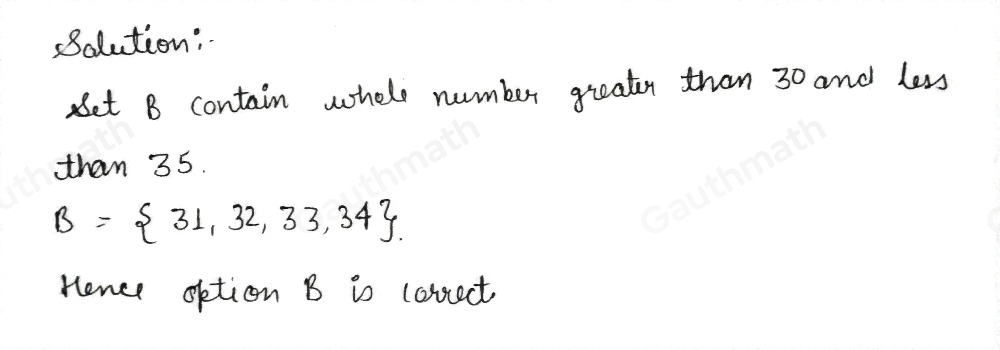 Solution:-
Set B contain whole number greater than 30 and less
than 35.
B = { 31, 32, 33, 34 }.
Hence option B is correct
Gauthmath
Gauthmath
Gauthmath